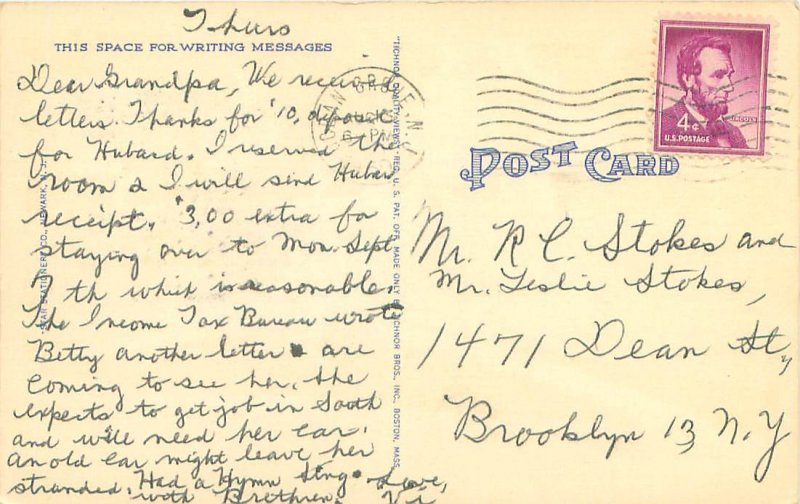 Thurs
THIS SPACE FOR WRITING MESSAGES
Dear Grandpa, We received
letters. Thanks for $10. deposit
for Hubard. I reserved the
room & I will send Hubard
receipt. $3.00 extra for
staying over to Mon. Sept
7th which is reasonable.
The Income Tax Bureau wrote
Betty another letter & are
coming to see her. She
expects to get job in South
and will need her car.
An old car might leave her
stranded. Had a Hymn Sing
with Brethren. Love,
STAR STATIONERY CO., NEWARK, N. J.
"TICHNOR QUALITY VIEWS," REG. U. S. PAT. OFF. MADE ONLY BY TICHNOR BROS., INC., BOSTON, MASS.
PM
4¢
LINCOLN
U.S. POSTAGE
POST CARD
Mr. R C. Stokes and
Mr. Leslie Stokes,
1471 Dean St,
Brooklyn 13, N.Y